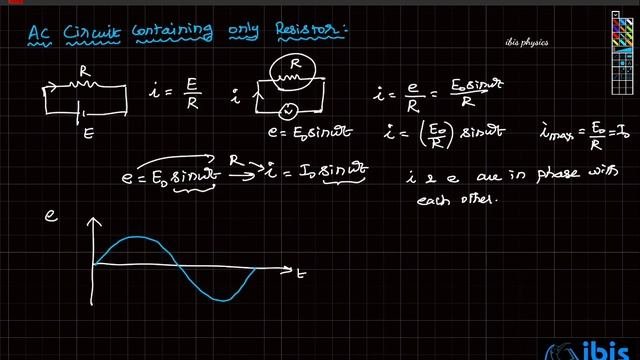 AC Circuit Containing only Resistor:
ibis physics
R
i = E/R
E
R
i
e = E₀sinωt
i = e/R = E₀sinωt/R
i = (E₀/R) sinωt
i max = E₀/R = I₀
e = E₀ sinωt R→ i = I₀ sinωt
i & e are in phase with
each other.
e
t
ibis